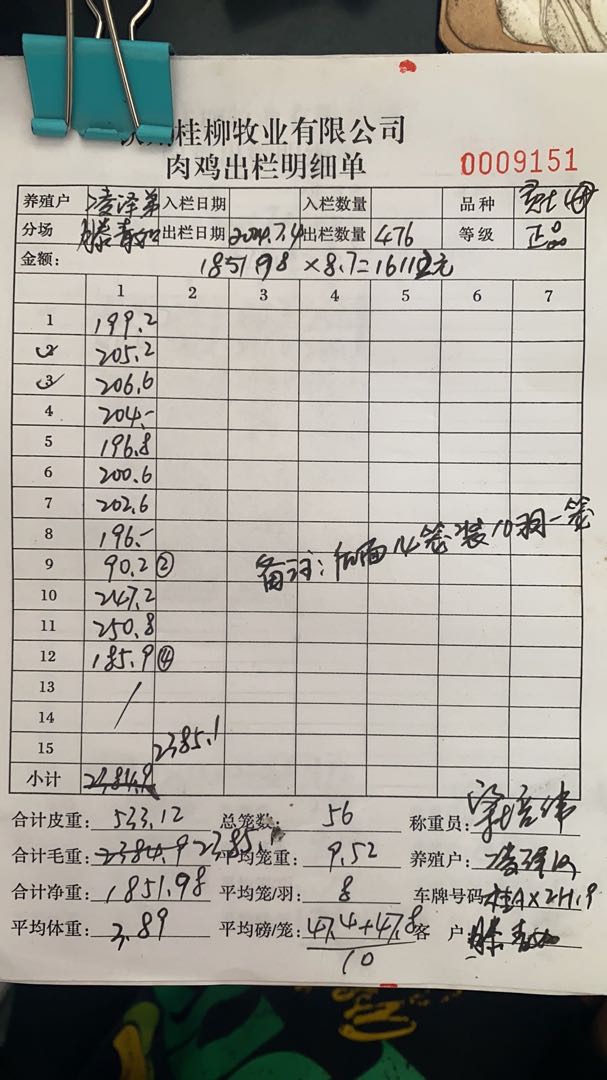 桂柳牧业有限公司
肉鸡出栏明细单 0009151
养殖户 凌泽弟 入栏日期 入栏数量 品种
分场 滕春 出栏日期 出栏数量 476 等级 正品
金额: 1851.98 × 8.7 = 16112元
1 2 3 4 5 6 7
1 199.2
2 205.2
3 206.6
4 204.-
5 196.8
6 200.6
7 202.6
8 196.-
9 90.2 ②
10 247.2
11 250.8
12 185.9 ④
13
14
15 2385.1
小计 2384.9
备注: 后面14笼装10羽一笼
合计皮重: 533.12 总笼数: 56 称重员:
合计毛重: 2384.9 2385.1 平均笼重: 9.52 养殖户:
合计净重: 1851.98 平均笼/羽: 8 车牌号码
平均体重: 3.89 平均磅/笼: 47.4+47.8 客 户:
10